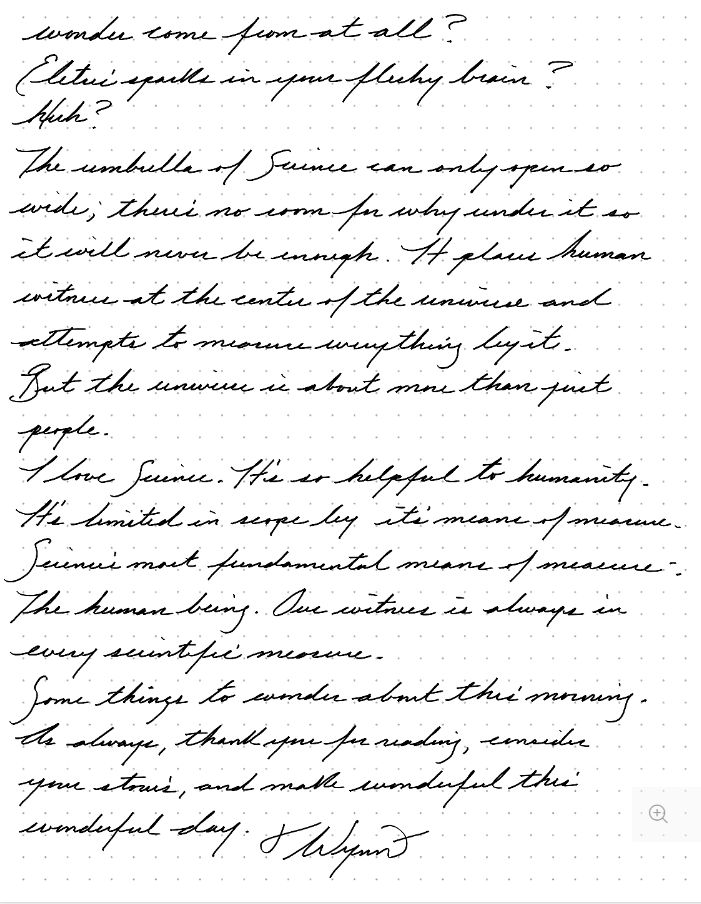 wonder come from at all?
Eletric sparks in your fleshy brain?
Huh?
The umbrella of Science can only open so
wide; there's no room for why under it so
it will never be enough. It places human
witness at the center of the universe and
attempts to measure everything by it.
But the universe is about more than just
people.
I love Science. It's so helpful to humanity.
It's limited in scope by it's means of measure.
Science's most fundamental means of measure-:
The human being. Our witness is always in
every scientific measure.
Some things to wonder about this morning.
As always, thank you for reading, consider
your stories, and make wonderful this
wonderful day. Wynn